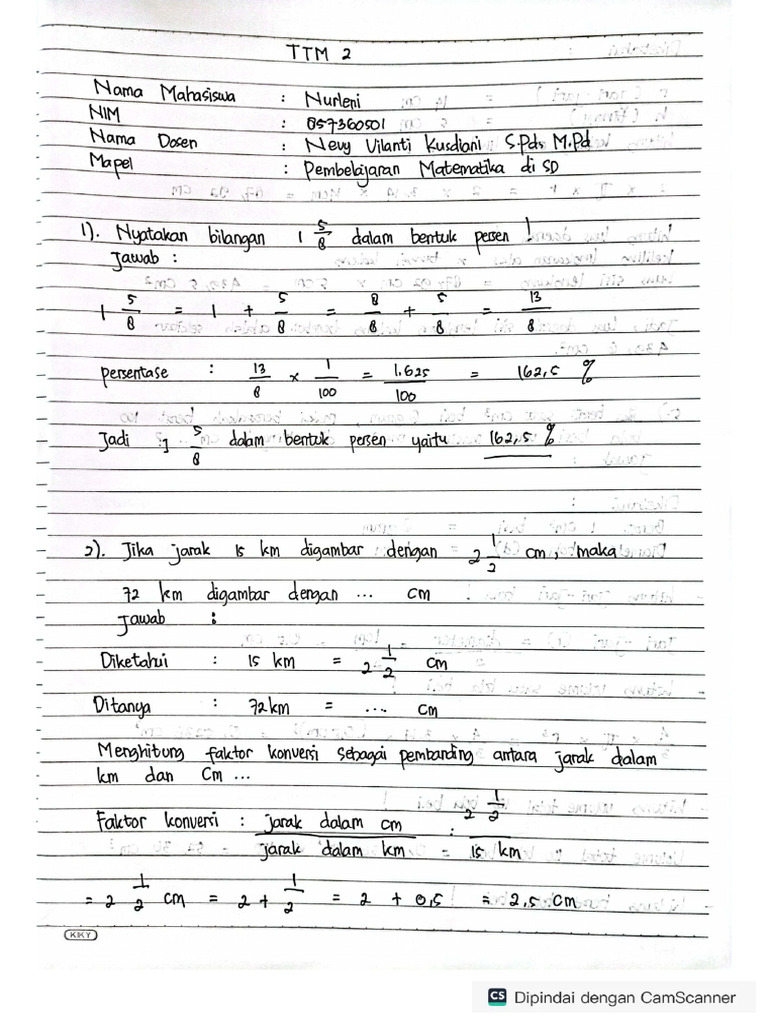 TTM 2
Nama Mahasiswa : Nurleni
NIM : 857360501
Nama Dosen : Nevy Vilanti Kusdiani S.Pds M.Pd
Mapel : Pembelajaran Matematika di SD
1). Nyatakan bilangan 1 5/8 dalam bentuk persen !
Jawab :
1 5/8 = 1 + 5/8 = 8/8 + 5/8 = 13/8
persentase : 13/8 x 1/100 = 1.625/100 = 162,5 %
Jadi 1 5/8 dalam bentuk persen yaitu 162,5 %
2). Jika jarak 15 km digambar dengan 2 1/2 cm, maka
72 km digambar dengan ... cm
Jawab :
Diketahui : 15 km = 2 1/2 cm
Ditanya : 72 km = ... cm
Menghitung faktor konversi sebagai pembanding antara jarak dalam
km dan Cm ...
Faktor konversi : jarak dalam cm / jarak dalam km = 2 1/2 / 15 km
= 2 1/2 cm = 2 + 1/2 = 2 + 0,5 = 2,5 cm
KIKY
CS Dipindai dengan CamScanner